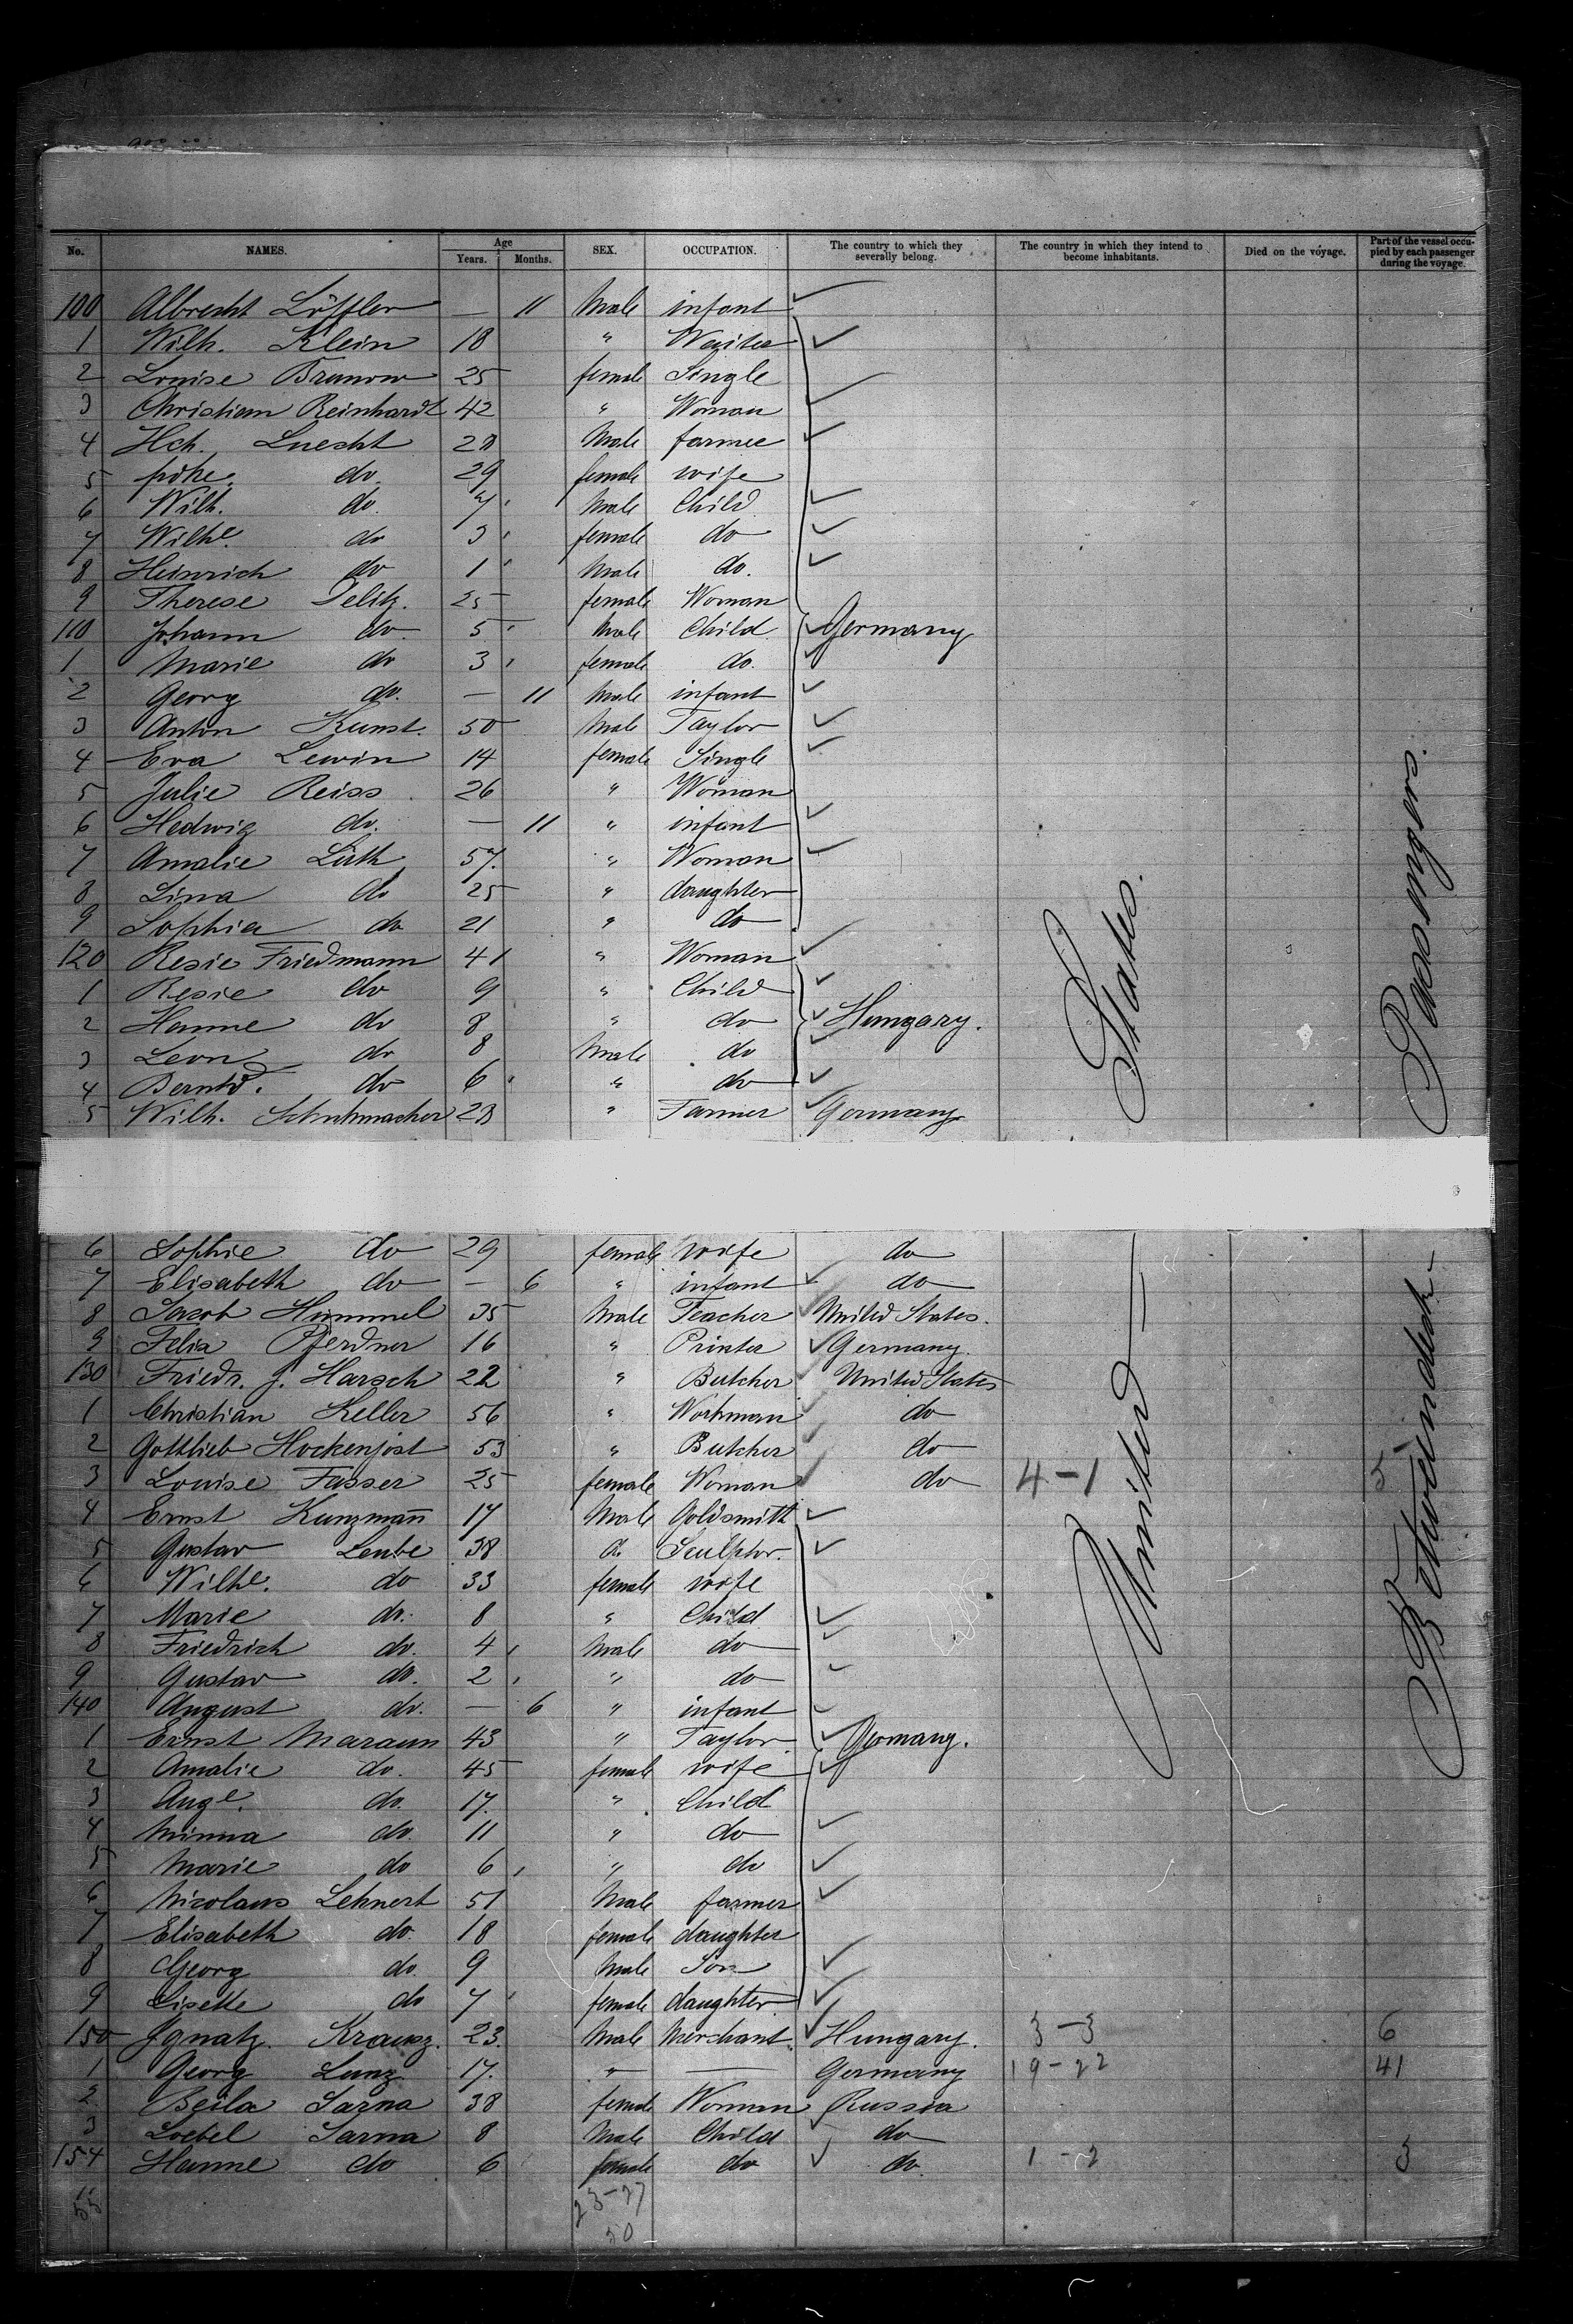 No. NAMES. Age Years. Months. SEX. OCCUPATION. The country to which they severally belong. The country in which they intend to become inhabitants. Died on the voyage. Part of the vessel occupied by each passenger during the voyage.
100 Albrecht Löffler — 11 Male infant
1 Wilh. Klein 18 " Waiter
2 Louise Brunow 25 female Single
3 Christian Reinhardt 42 " Woman
4 Hch. Luecht 28 Male farmer
5 do. 29 female wife
6 Wilh. do. 7 Male Child
7 Wilhe. do 3 female do
8 Heinrich do 1 Male do.
9 Therese Delitz. 25 female Woman
110 Johann do 5 Male Child Germany
1 Marie do 3 female do.
2 Georg do. — 11 Male infant
3 Anton Kunst. 50 Male Taylor
4 Eva Lewin 14 female Single
5 Julie Reiss 26 " Woman
6 Hedwig do. — 11 " infant
7 Amalie Lüth 57. " Woman
8 Lina do 25 " daughter
9 Sophia do 21 " do
120 Resie Friedmann 41 " Woman
1 Resie do 9 " Child
2 Hanne do 8 " do Hungary.
3 Leon do 8 Male do
4 Bernhd. do 6 " do
5 Wilh. Schuhmacher 28 " Farmer Germany
6 Sophie do 29 female wife do
7 Elisabeth do — 6 " infant do
8 Jacob Himmel 35 Male Teacher United States.
9 Felix Pferdner 16 " Printer Germany.
130 Friedr. J. Harsch 22 " Butcher United States
1 Christian Keller 56 " Workman do
2 Gottlieb Hockenjost 53 " Butcher do
3 Louise Fasser 25 female Woman do 4-1 5
4 Ernst Kunzmann 17 Male Goldsmith
5 Gustav Leube 38 do Sculptor.
6 Wilhe. do 33 female wife
7 Marie do. 8 " Child
8 Friedrich do. 4 Male do
9 Gustav do. 2 " do
140 August do. — 6 " infant
1 Ernst Maraun 43 " Taylor Germany.
2 Amalie do. 45 female wife
3 Auge. do. 17. " Child
4 Minna do. 11 " do
5 Marie do 6 " do
6 Nicolaus Lehnert 51 Male farmer
7 Elisabeth do. 18 female daughter
8 Georg do. 9 Male Son
9 Lisette do 7 female daughter
150 Ignatz Krausz. 23. Male Merchant Hungary. 3-3 6
1 Georg Lunz 17. " — Germany 19-22 41
2 Beila Sarna 38 female Woman Russia
3 Loebel Sarna 8 Male Child do
154 Hanne do 6 female do do. 1-2 3
55 23-27
50
United States.
Betweendeck Passengers.